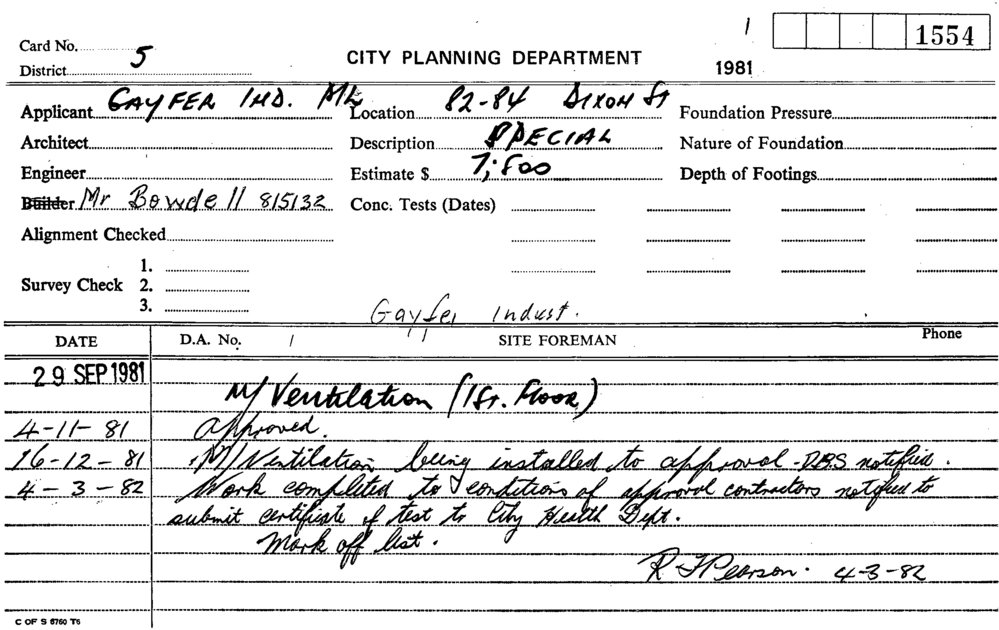 1 1554
Card No. 5
CITY PLANNING DEPARTMENT
District
1981
Applicant GAYFER IND. P/L Location 82-84 DIXON St Foundation Pressure
Architect Description SPECIAL Nature of Foundation
Engineer Estimate $ 7,800 Depth of Footings
Builder Mr Bowdell 815132 Conc. Tests (Dates)
Alignment Checked
1.
Survey Check 2.
3.
Gayfer Indust.
DATE D.A. No. / SITE FOREMAN Phone
29 SEP 1981
M/Ventilation (1st. Floor)
4-11-81 Approved.
16-12-81 M/Ventilation being installed to approval - D.B.S notified.
4-3-82 Work completed to conditions of approval contractors notified to
submit certificate of test to City Health Dept.
Mark off list.
R F Pearson. 4-3-82
C OF S 6760 T6